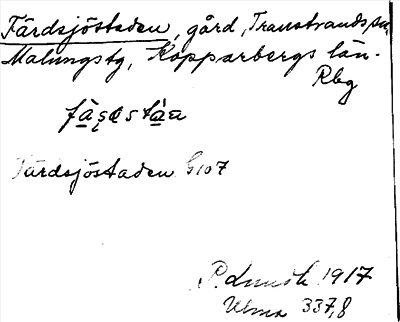 Färdsjöstaden, gård, Transtrands sn,
Malungs tg, Kopparbergs län.
Rbg
Färdsjöstaden G107
1917
Ulma 337,8